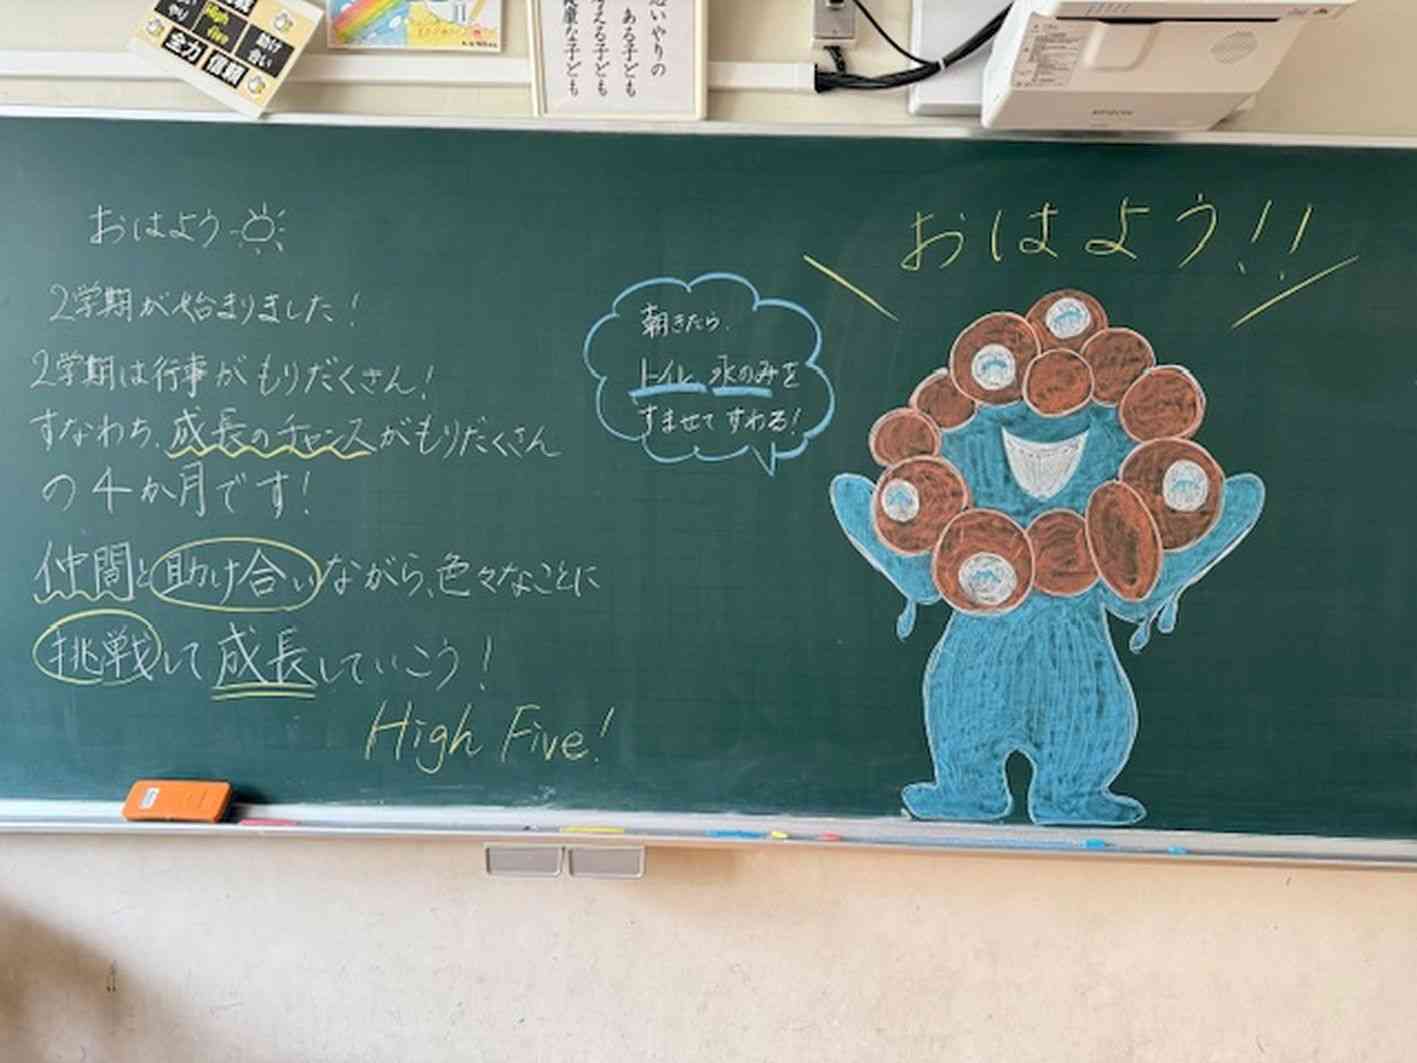 High
five
助け
合い
全力
信頼
思いやりの
ある子ども
考える子ども
健康な子ども
EPSON
おはよう
2学期が始まりました!
2学期は行事がもりだくさん!
すなわち、成長のチャンスがもりだくさん
の4か月です!
仲間と助け合いながら、色々なことに
挑戦して成長していこう!
High Five!
朝きたら、
トイレ 水のみを
すませてすわる!
おはよう!!